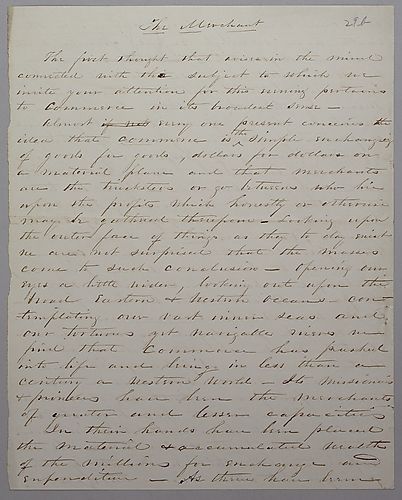 The Merchant
296
The first thought that arises in the mind
connected with the subject to which we
invite your attention for this evening pertains
to Commerce in its broadest sense –
Almost if not every one present conceives the
idea that commerce is the simple exchanging
of goods for goods, dollars for dollars on
a material plane and that merchants
are the tricksters or go betweens who live
upon the profits which honestly or otherwise
may be gathered therefrom – Looking upon
the outer face of things as they to day exist
we are not surprised that the masses
come to such conclusion – Opening our
eyes a little wider, looking out upon the
broad Eastern & Western Oceans – con-
templating our vast inner seas and
our tortuous yet navigable rivers we
find that Commerce has pushed
into life and being in less than a
century a Western World – Its missionaries
& pioneers have been the merchants
of greater and lesser capacities
In their hands have been placed
the material & accumulated wealth
of the millions for exchange and
expenditure – As there have been